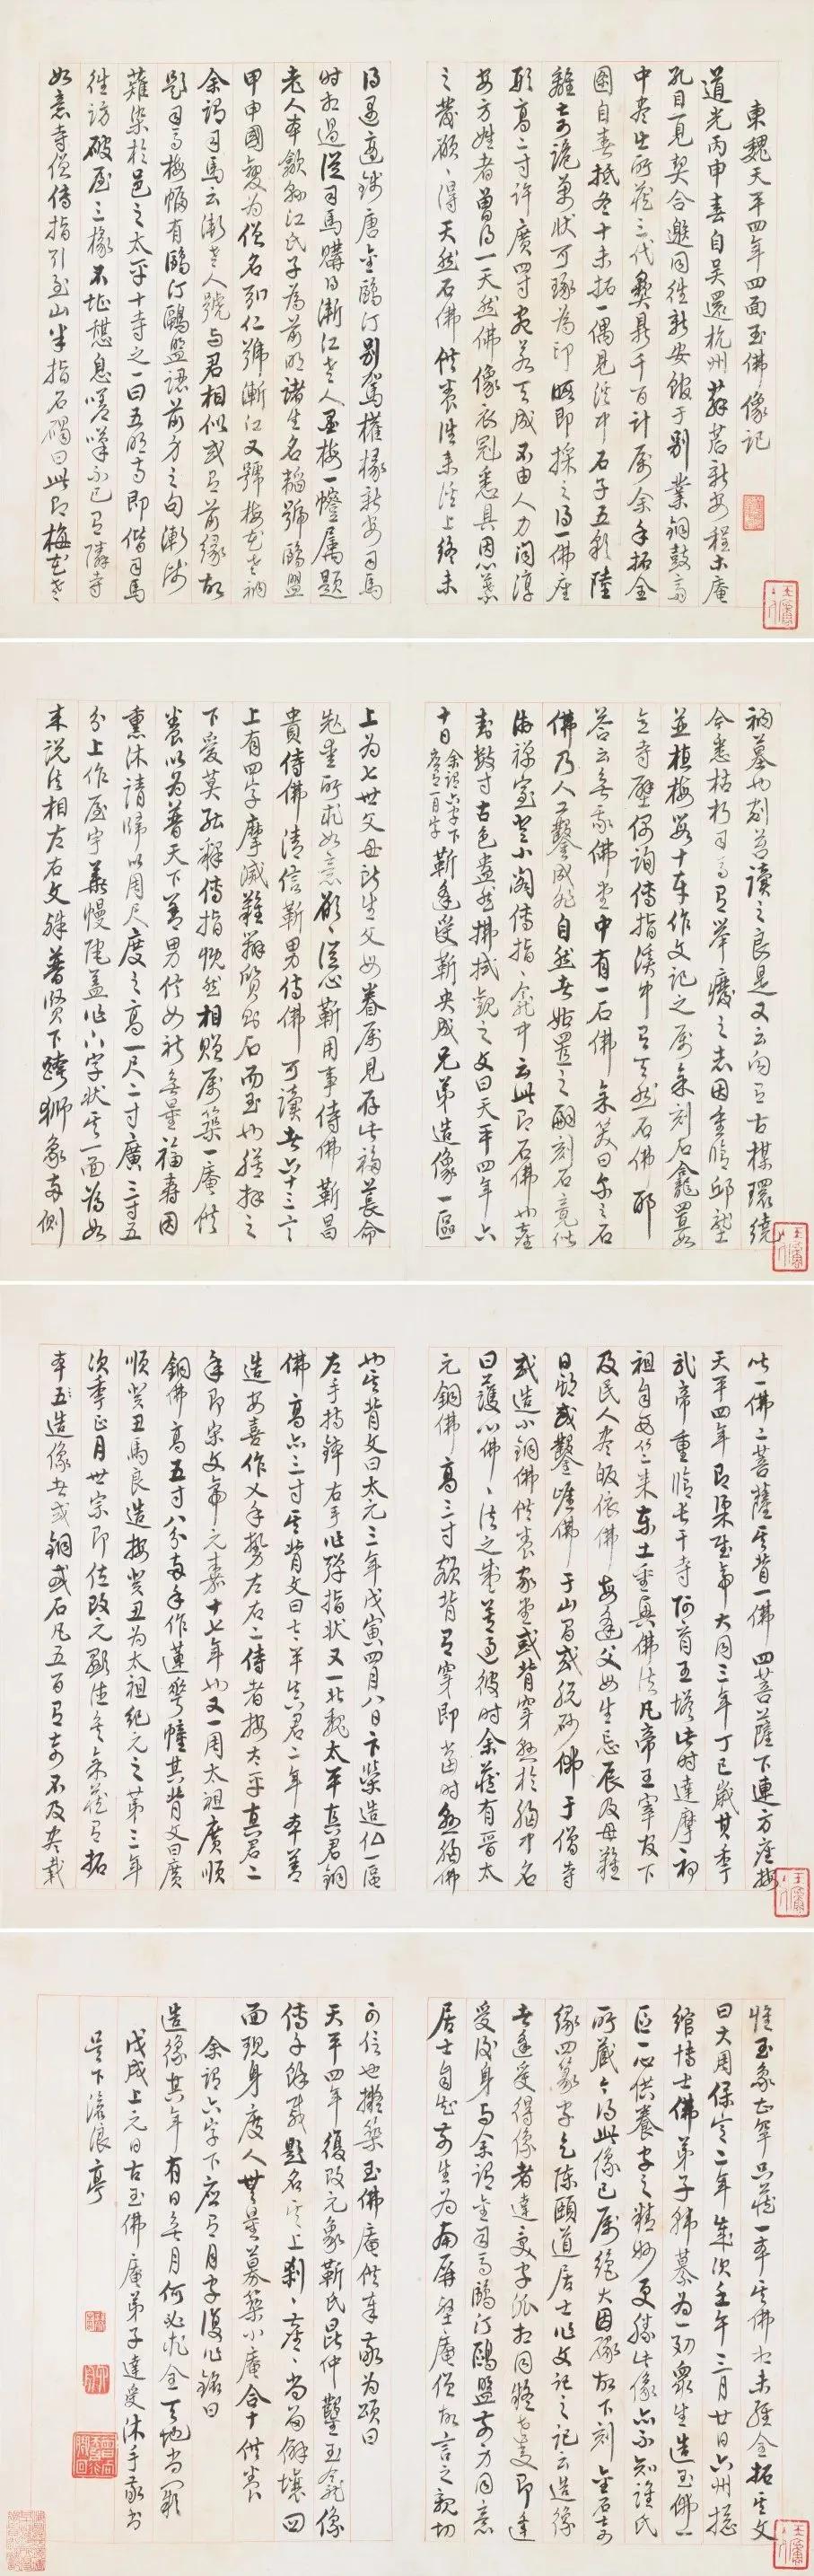 東魏天平四年四面玉佛像記
道光丙申春自吳還杭州薜蕳新安程木庵
孔目一見契合邀同往新安館于别業銅鼓齋
中盡出所藏三代彝器千百計属余手拓全
圖自春抵冬十未拓一偶見溪中石子五彩陸
離奇詭萬狀可琢為印暇即採之得一佛座
形高二寸許廣四寸宛若天成不由人力聞淳
安方姓者曾得一天然佛像衣冠悉具因心募
之發願願得天然石佛供養從來溪上終未
得遇適錢唐金鷗汀别駕權椽新安司馬
時相過從司馬購得漸江老人畫梅一幢属題
老人本歙縣江氏子為前明諸生名韜號鷗盟
甲申國變為僧名弘仁號漸江又號梅花老衲
余謂司馬云漸老人號与君相似或有前緣故
題司馬梅幀有鷗汀鷗盟認前身之句漸師
薙染於邑之太平十寺之一曰五明寺即偕司馬
往訪破屋三椽不堪憩息嗟嘆不已有隣寺
如意寺僧傳指引至山半指石碣曰此即梅花老
衲墓也剔苔讀之良是又云向有古楳環繞
今悉枯朽司馬有舉廢之志因重修邱壟
並植梅數十本作文記之属余刻石龕置如
意寺壁偶詢傳指溪中有天然石佛耶
答云無我佛堂中有一石佛余笑曰尔之石
佛乃人工鑿成非自然者姑置之嗣刻石竟偕
海禪室登小閣傳指指龕中云此即石佛也塵
封數寸古色盎然拂拭觀之文曰天平四年六
十日余謂六字下應有一月字靳逢受靳央成兄弟造像一區
上為七世父母所生父母眷属見存此福萇命
老壽所求如意願願從心靳用事侍佛靳昌
貴侍佛清信靳男侍佛可讀者六十三言
上有四字摩滅難辨質則石而玉也膜拜之
下愛莫能釋傳指慨然相贈属築一庵供
養以為普天下善男信女祈無量福壽因
熏沐請歸以周尺度之高一尺二寸廣三寸五
分上作屋宇華幔寶蓋作六字狀其一面為如
來說法相左右文殊普賢下跨獅象兩側
皆一佛二菩薩其背一佛四菩薩下連方座按
天平四年即梁武帝大同三年丁巳歲其季
武帝重修長干寺阿育王塔此時達摩初
祖自西竺来東土重興佛法凡帝王宰官下
及民人盡皈依佛每逢父母生忌辰及母難
日郎或鑿崖佛于山間或脫砂佛于僧寺
或造小銅佛供養家堂或背穿懸於胸中名
曰護心佛佛法之盛莫過彼時余舊有晋太
元銅佛高三寸頗背有穿即當時懸胸佛
也其背文曰太元三年戊寅四月八日卞榮造仏一區
左手持鉢右手作彈指狀又一北魏太平真君銅
佛高亦三寸其背文曰太平真君二年本善
造安喜作乂手勢左右二侍者按太平真君二
年即宋文帝元嘉十七年也又一周太祖廣順
銅佛高五寸八分两手作蓮華幢其背文曰廣
順癸丑馬良造按癸丑為太祖紀元之第三年
次季正月世宗即位改元顯德矣余舊有拓
本五造像者或銅或石凡五百有奇不及具載
惟玉象亡罕只舊一本其佛相未經全拓其文
曰大周保定二年歲次壬午三月廿日六州揔
綰博士佛弟子 為一切衆生造玉佛一
區一心供養字之精妙更勝此像亦不知誰氏
所藏今得此像已属絶大因緣故下刻金石奇
緣四篆字乞陳頤道居士作文記之記云造像
者逢受得像者達受字派相同殆逢受即達
受後身与余謂金司馬鷗汀鷗盟前身同意
居士自知前生為南屏壑庵僧故言之親切
可信也擬築玉佛庵供奉敬為頌曰
天平四年復改元象靳氏昆仲鑿玉龕像
傳千餘載題名其上剎剎塵塵尚留餘壤四
面現身度人無量募築小庵合十供養
余謂六字下应有月字復作銘曰
造像其年有日無月何必求全天地尚闕
戊戌上元日古玉佛庵弟子達受沐手敬書
吳下滄浪亭